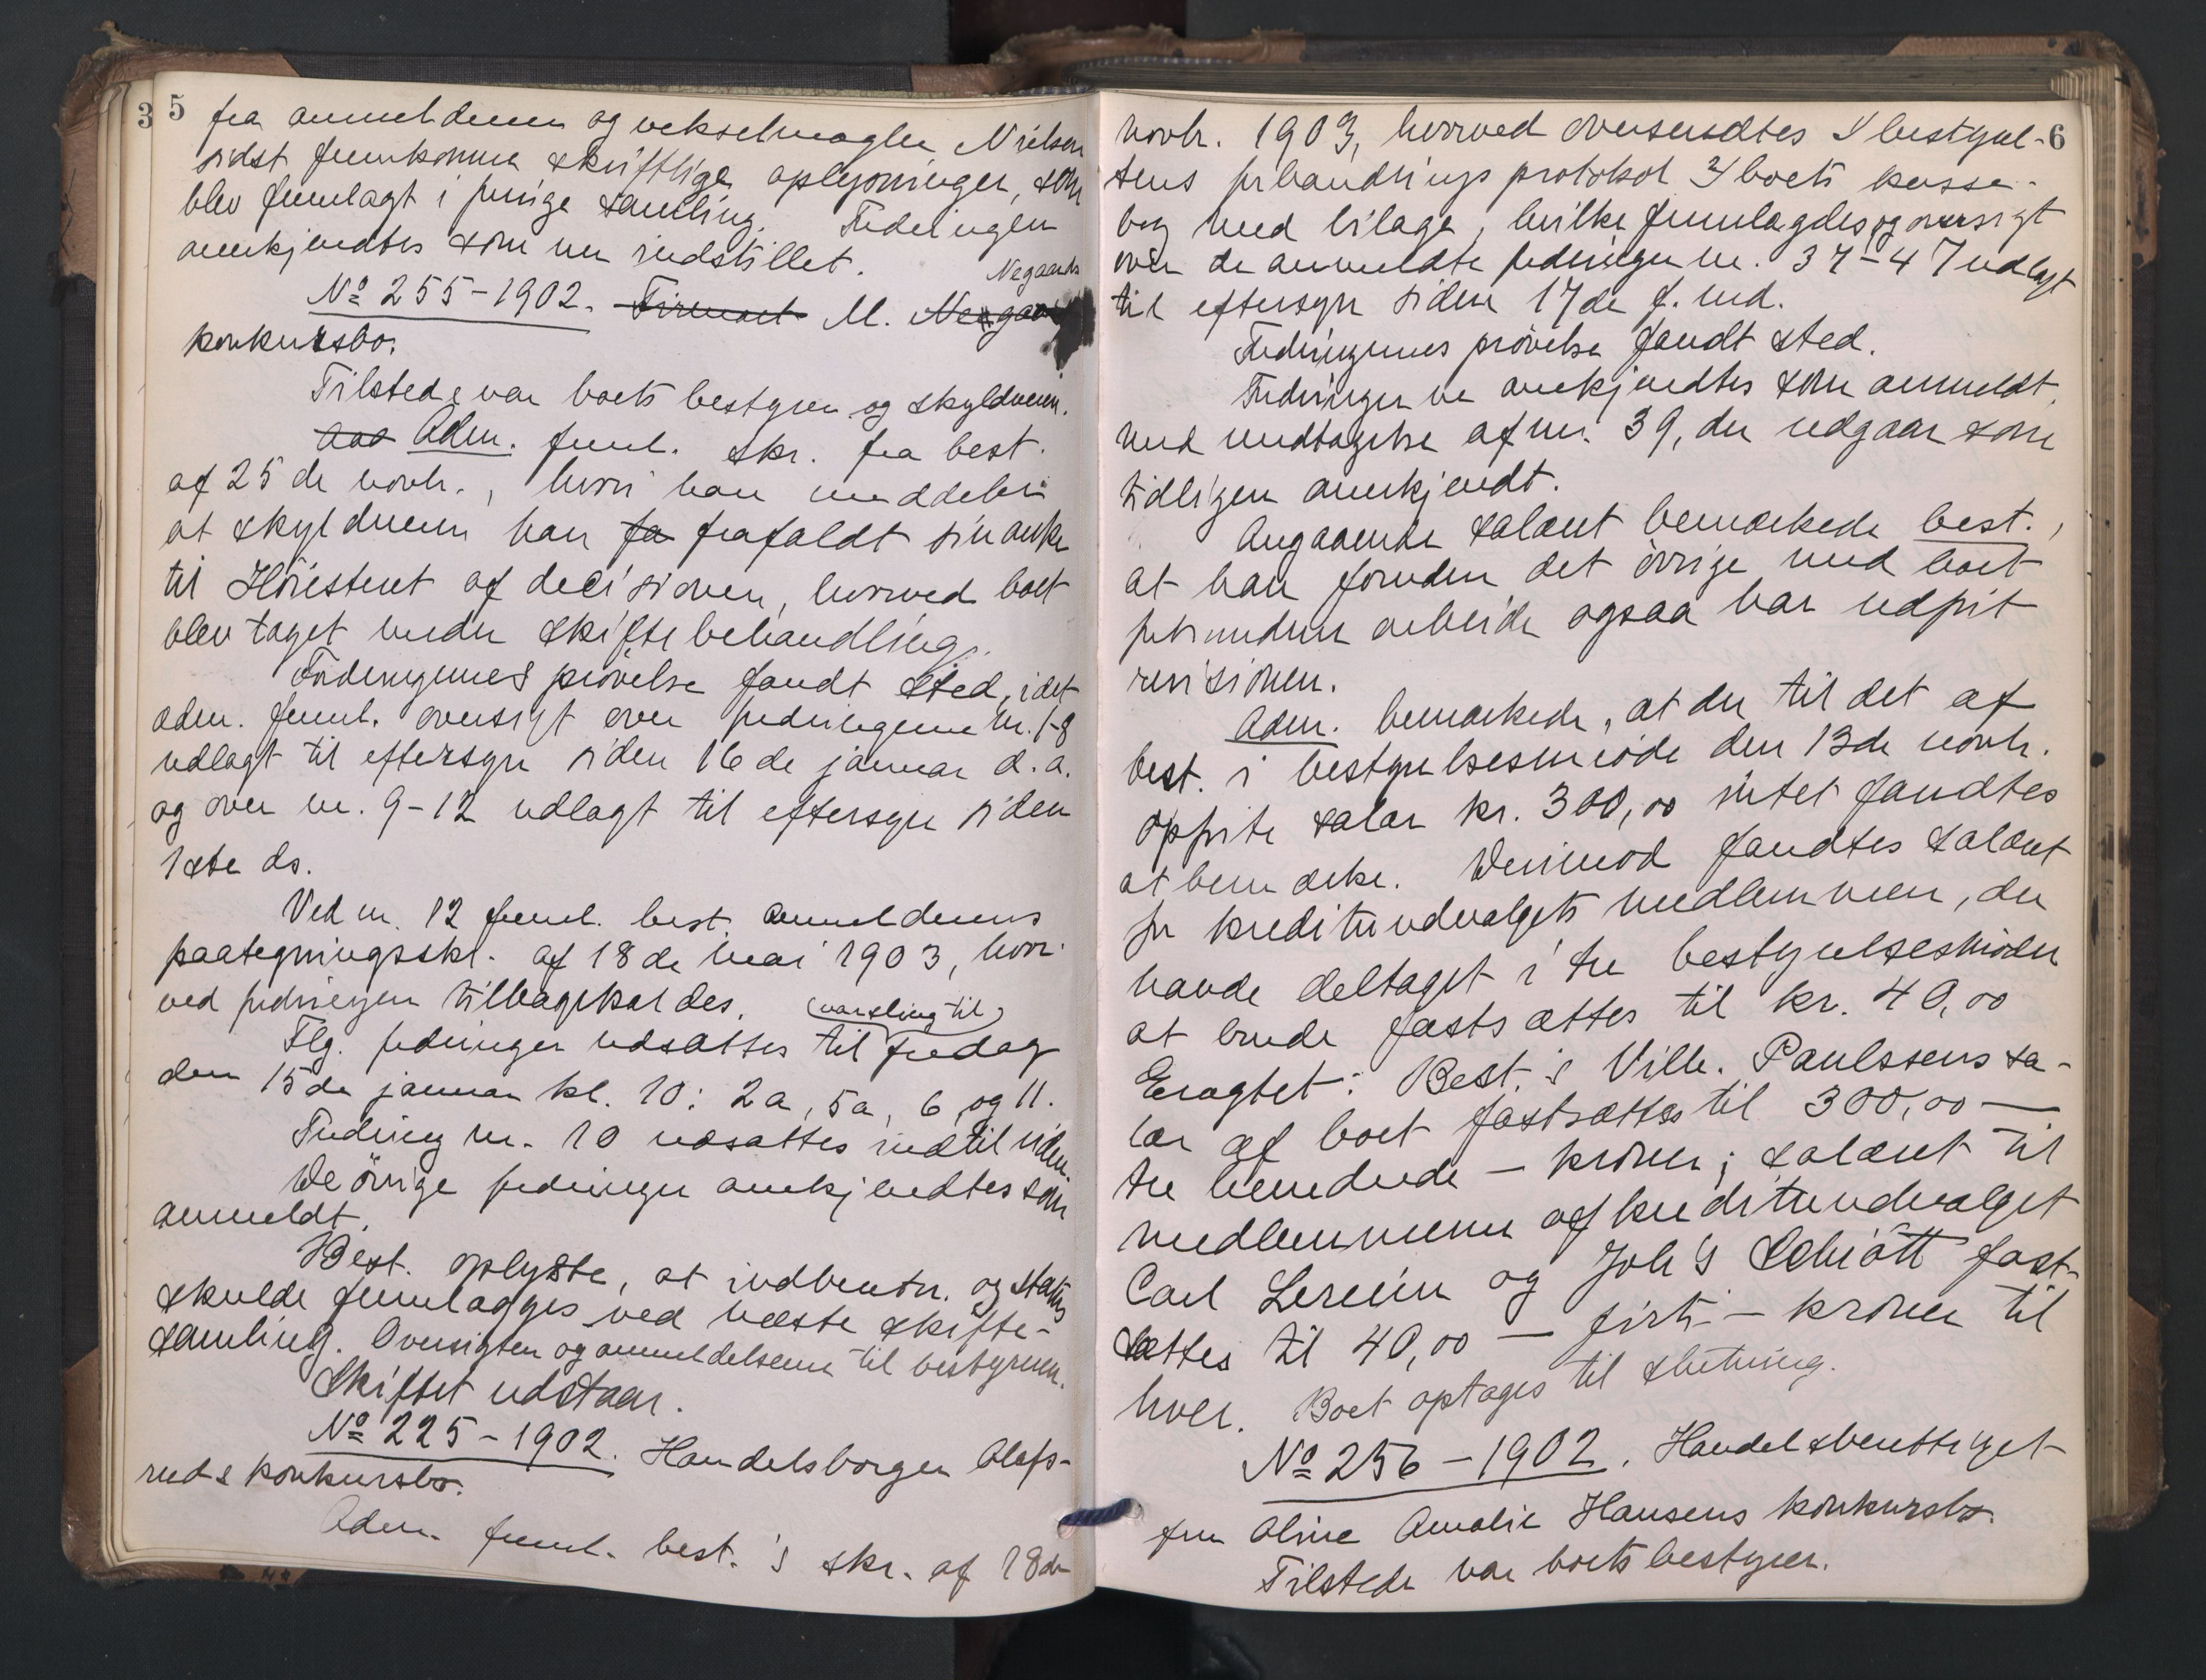 3 5
fra anmelderen og vekselmægler Nielsen
sidst fremkomne skriftlige oplysninger, som
blev fremlagt i forrige samling. Fordringen
anerkjendtes som nu indstillet.
Nº 255-1902. Firmaet M. Neegaards Negaards
konkursbo.
Tilstede var boets bestyrer og skyldneren.
Aad Adm. freml. skr. fra best.
af 25de novbr., hvori han meddeler
at skyldneren har fa frafaldt sin anke
til Höiesteret af decisionen, hvorved boet
blev taget under skiftebehandling.
Fordringernes prövelse fandt sted, idet
adm. freml. oversigt over fordringerne nr. 1-8
udlagt til eftersyn siden 16de januar d.a.
og over nr. 9-12 udlagt til eftersyn siden
1ste ds.
Ved nr. 12 freml. best. anmelderens
paategningsskr. af 18de mai 1903, hvor-
ved fordringen tilbagekaldes.
(varsling til)
Flg. fordringer udsattes til fredag
den 15de januar kl. 10: 2a, 5a, 6 og 11.
Fordring nr. 10 udsattes indtil videre.
De övrige fordringer anerkjendtes som
anmeldt.
Best. oplyste, at indberetn. og status
skulde fremlægges ved næste skifte-
samling. Oversigten og anmeldelserne til bestyreren.
Skiftet udstaar.
Nº 225-1902. Handelsborger Olafs-
ruds konkursbo.
Adm. freml. best.'s skr. af 18de
6
novbr. 1903, hvorved oversendtes 1/ bestyrel-
sens forhandlingsprotokol 2/ boets kasse-
bog med bilage, hvilke fremlagdes og oversigt
over de anmeldte fordringer nr. 37-47 udlagt
til eftersyn siden 17de f. md.
Fordringernes prövelse fandt sted.
Fordringerne anerkjendtes som anmeldt,
med undtagelse af nr. 39, der udgaar som
tidligere anerkjendt.
Angaaende salæret bemærkede best.,
at han foruden det övrige med boet
forbundne arbeide ogsaa har udfört
revisionen.
Adm. bemærkede, at der til det af
best. i bestyrelsesmöde den 13de novbr.
opförte salær kr. 300,00 intet fandtes
at bemærke. Derimod fandtes salæret
for kreditorudvalgets medlemmer, der
havde deltaget i tre bestyrelsesmöder
at burde fastsættes til kr. 40,00
Eragtet: Best.'s Vilh. Paulssens sa-
lær af boet fastsættes til 300,00 —
tre hundrede — kroner; salæret til
medlemmerne af kreditorudvalget
Carl Lereim og Joh's Schiött fast-
sættes til 40,00 — firti — kroner til
hver. Boet optages til slutning.
Nº 256-1902. Handelsberettiget
fru Oline Amalie Hansens konkursbo.
Tilstede var boets bestyrer.